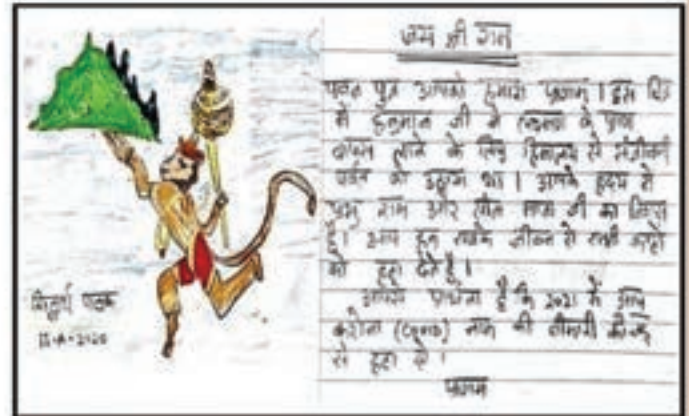 जय श्री राम
पवन पुत्र आपको हमारा प्रणाम । इस दिन
में हनुमान जी ने लक्ष्मण के प्राण
वापस लाने के लिए हिमालय से संजीवनी
पर्वत को उठाया था । आपके हृदय में
प्रभु राम और सीता माता जी का निवास
है। आप हम सबके जीवन से सभी कष्टों
को हटा देते है ।
आपसे प्रार्थना है कि 2021 में आप
करोना (covid) नाम की बीमारी को
से हटा दो ।
प्रणाम
सिद्धार्थ पाठक
II-A-2020